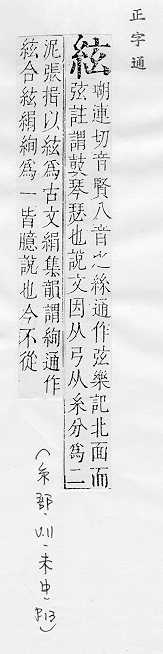 正字通
絃
胡連切音賢八音之絲通作弦樂記北面而
弦註謂鼓琴瑟也說文因从弓从糸分爲二
泥張揖以絃爲古文絹集韻謂絢通作
絃合絃絹絢爲一皆臆說也今不從
(糸部、未中、P13)